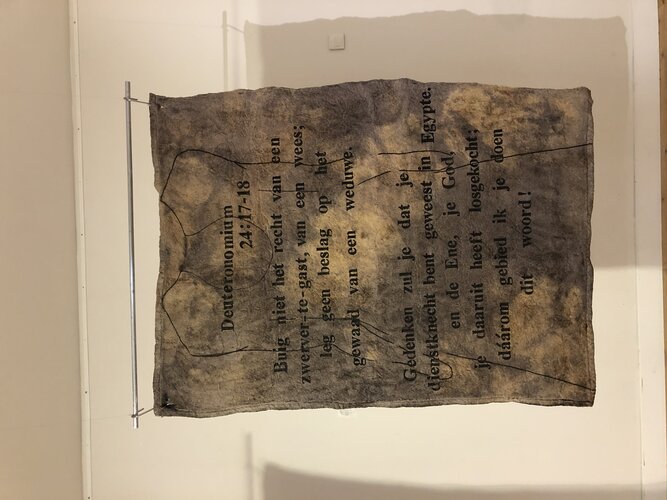 Deuteronomium
24:17-18
Buig niet het recht van een
zwerver-te-gast, van een wees;
leg geen beslag op het
gewaad van een weduwe.
Gedenken zul je dat je
dienstknecht bent geweest in Egypte,
en de Ene, je God,
je daaruit heeft losgekocht;
dáárom gebied ik je doen
dit woord!